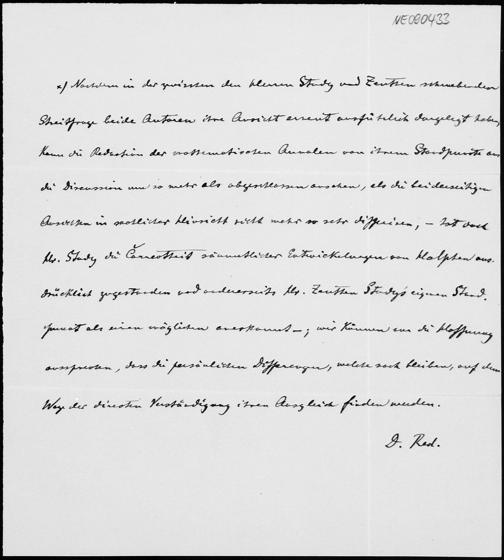 NE090433
x) Nachdem in der zwischen den Herren Study und Zeuthen schwebenden
Streitfrage beide Autoren ihre Ansicht erneut ausführlich dargelegt haben,
kann die Redaction der mathematischen Annalen von ihrem Standpunkte aus
die Discussion um so mehr als abgeschlossen ansehen, als die beiderseitigen
Ansichten in sachlicher Hinsicht nicht mehr so sehr differiren, – hat doch
Hr. Study die Correctheit sämmtlicher Entwickelungen von Halphen aus-
drücklich zugestanden und andererseits Hr. Zeuthen Study's eignen Stand-
punct als einen möglichen anerkannt –; wir können nur die Hoffnung
aussprechen, dass die persönlichen Differenzen, welche noch bleiben, auf dem
Wege der directen Verständigung ihren Ausgleich finden werden.
D. Red.